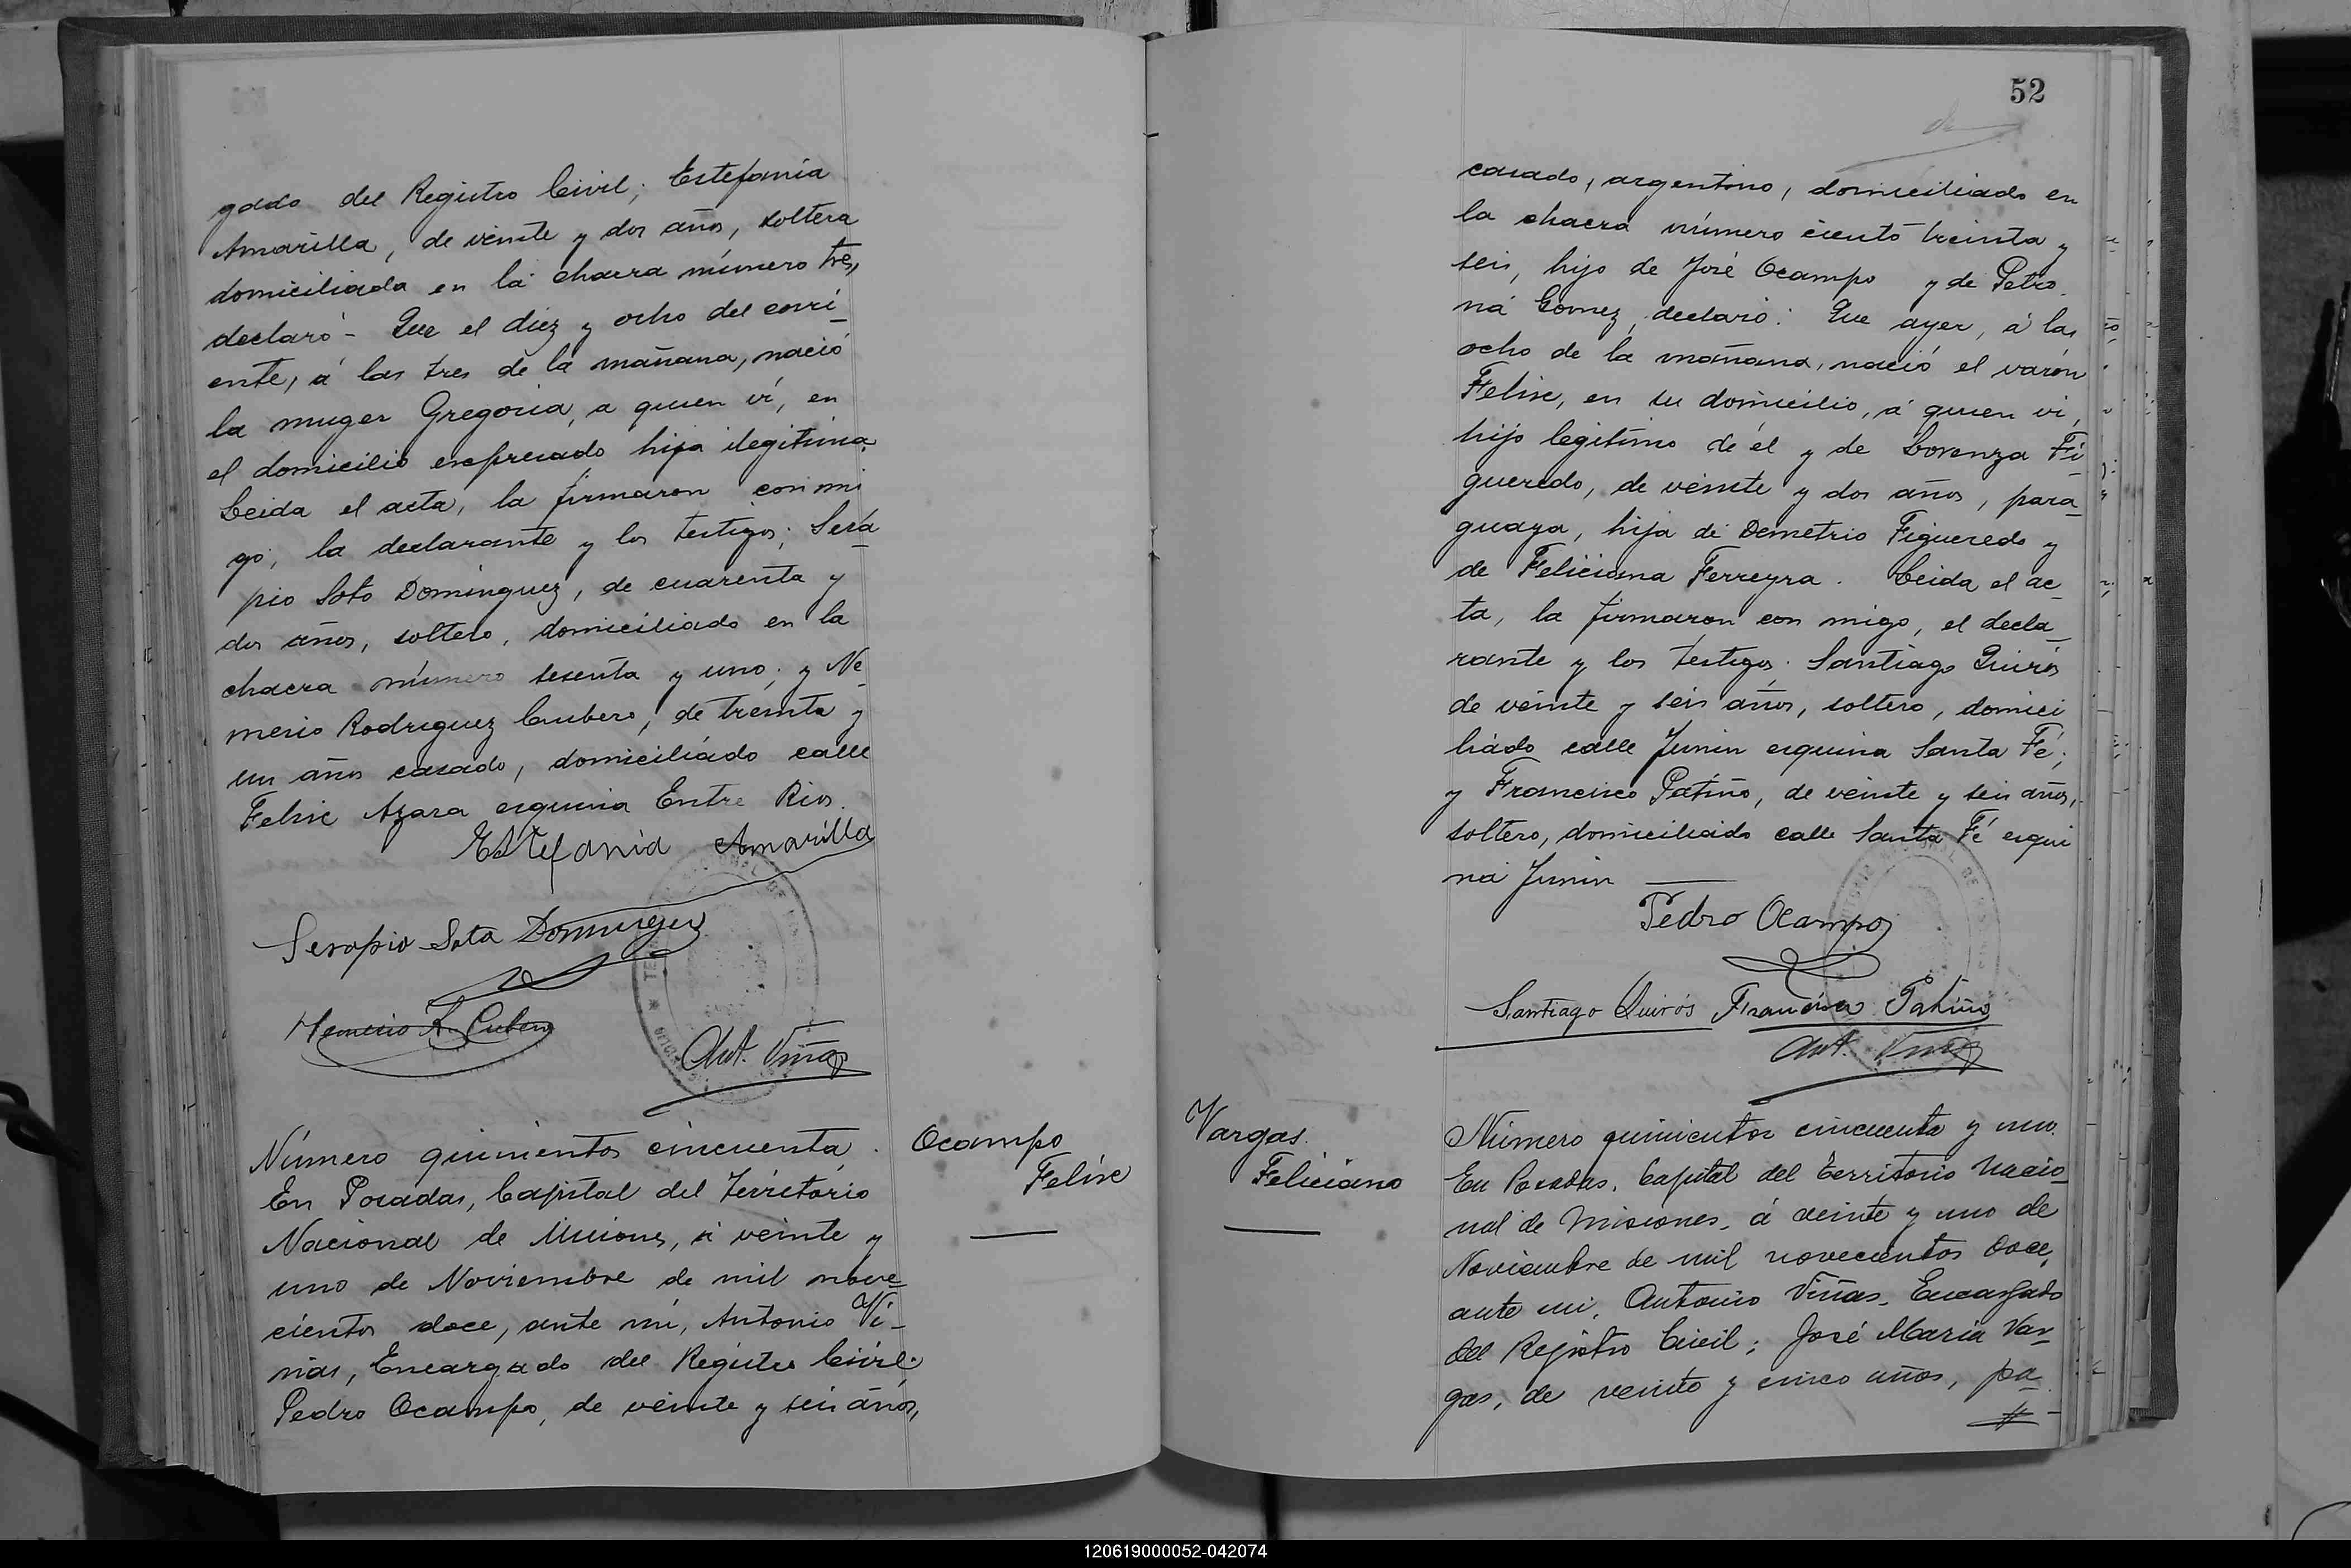 gado del Registro Civil; Estefania
Amarilla, de veinte y dos años, soltera
domiciliada en la chacra número tres,
declaró - Que el diez y ocho del corri_
ente, á las tres de la mañana, nació
la muger Gregoria, a quien ví, en
el domicilio expresado hija ilegitima.
Leida el acta, la firmaron con mi
go, la declarante y los testigos; Sera_
pio Soto Dominguez, de cuarenta y
dos años, soltero, domiciliado en la
chacra número sesenta y uno; y Ne_
mesio Rodriguez Cubero, de treinta y
un años casado, domiciliado calle
Felix Azara esquina Entre Rios.
Estefania Amarilla
Serapio Soto Dominguez
Nemesio R. Cubero
Ant. Viñas
Número quinientos cincuenta.
En Posadas, Capital del Territorio
Nacional de Misiones, á veinte y
uno de Noviembre de mil nove_
cientos doce, ante mí, Antonio Vi_
ñas, Encargado del Registro Civil;
Pedro Ocampo, de veinte y seis años,
Ocampo
Felix
52
casado, argentino, domiciliado en
la chacra número ciento treinta y
seis, hijo de José Ocampo y de Petro_
na Gomez, declaró: Que ayer, á las
ocho de la mañana, nació el varón
Felix, en su domicilio, á quien vi,
hijo legítimo de él y de Lorenza Fi_
gueredo, de veinte y dos años, para_
guaya, hija de Demetrio Figueredo y
de Feliciana Ferreyra. Leida el ac_
ta, la firmaron con migo, el decla_
rante y los testigos: Santiago Quirós
de veinte y seis años, soltero, domici
liado calle Junin esquina Santa Fé;
y Francisco Patiño, de veinte y seis años,
soltero, domiciliado calle Santa Fé esqui
na Junin
Pedro Ocampo
Santiago Quirós Francisco Patiño
Ant. Viñas
Vargas
Feliciano
Número quinientos cincuenta y uno.
En Posadas, Capital del Territorio Nacio_
nal de Misiones, á veinte y uno de
Noviembre de mil novecientos doce,
ante mi, Antonio Viñas, Encargado
del Registro Civil; José Maria Var_
gas, de veinte y cinco años, pa_
120619000052-042074